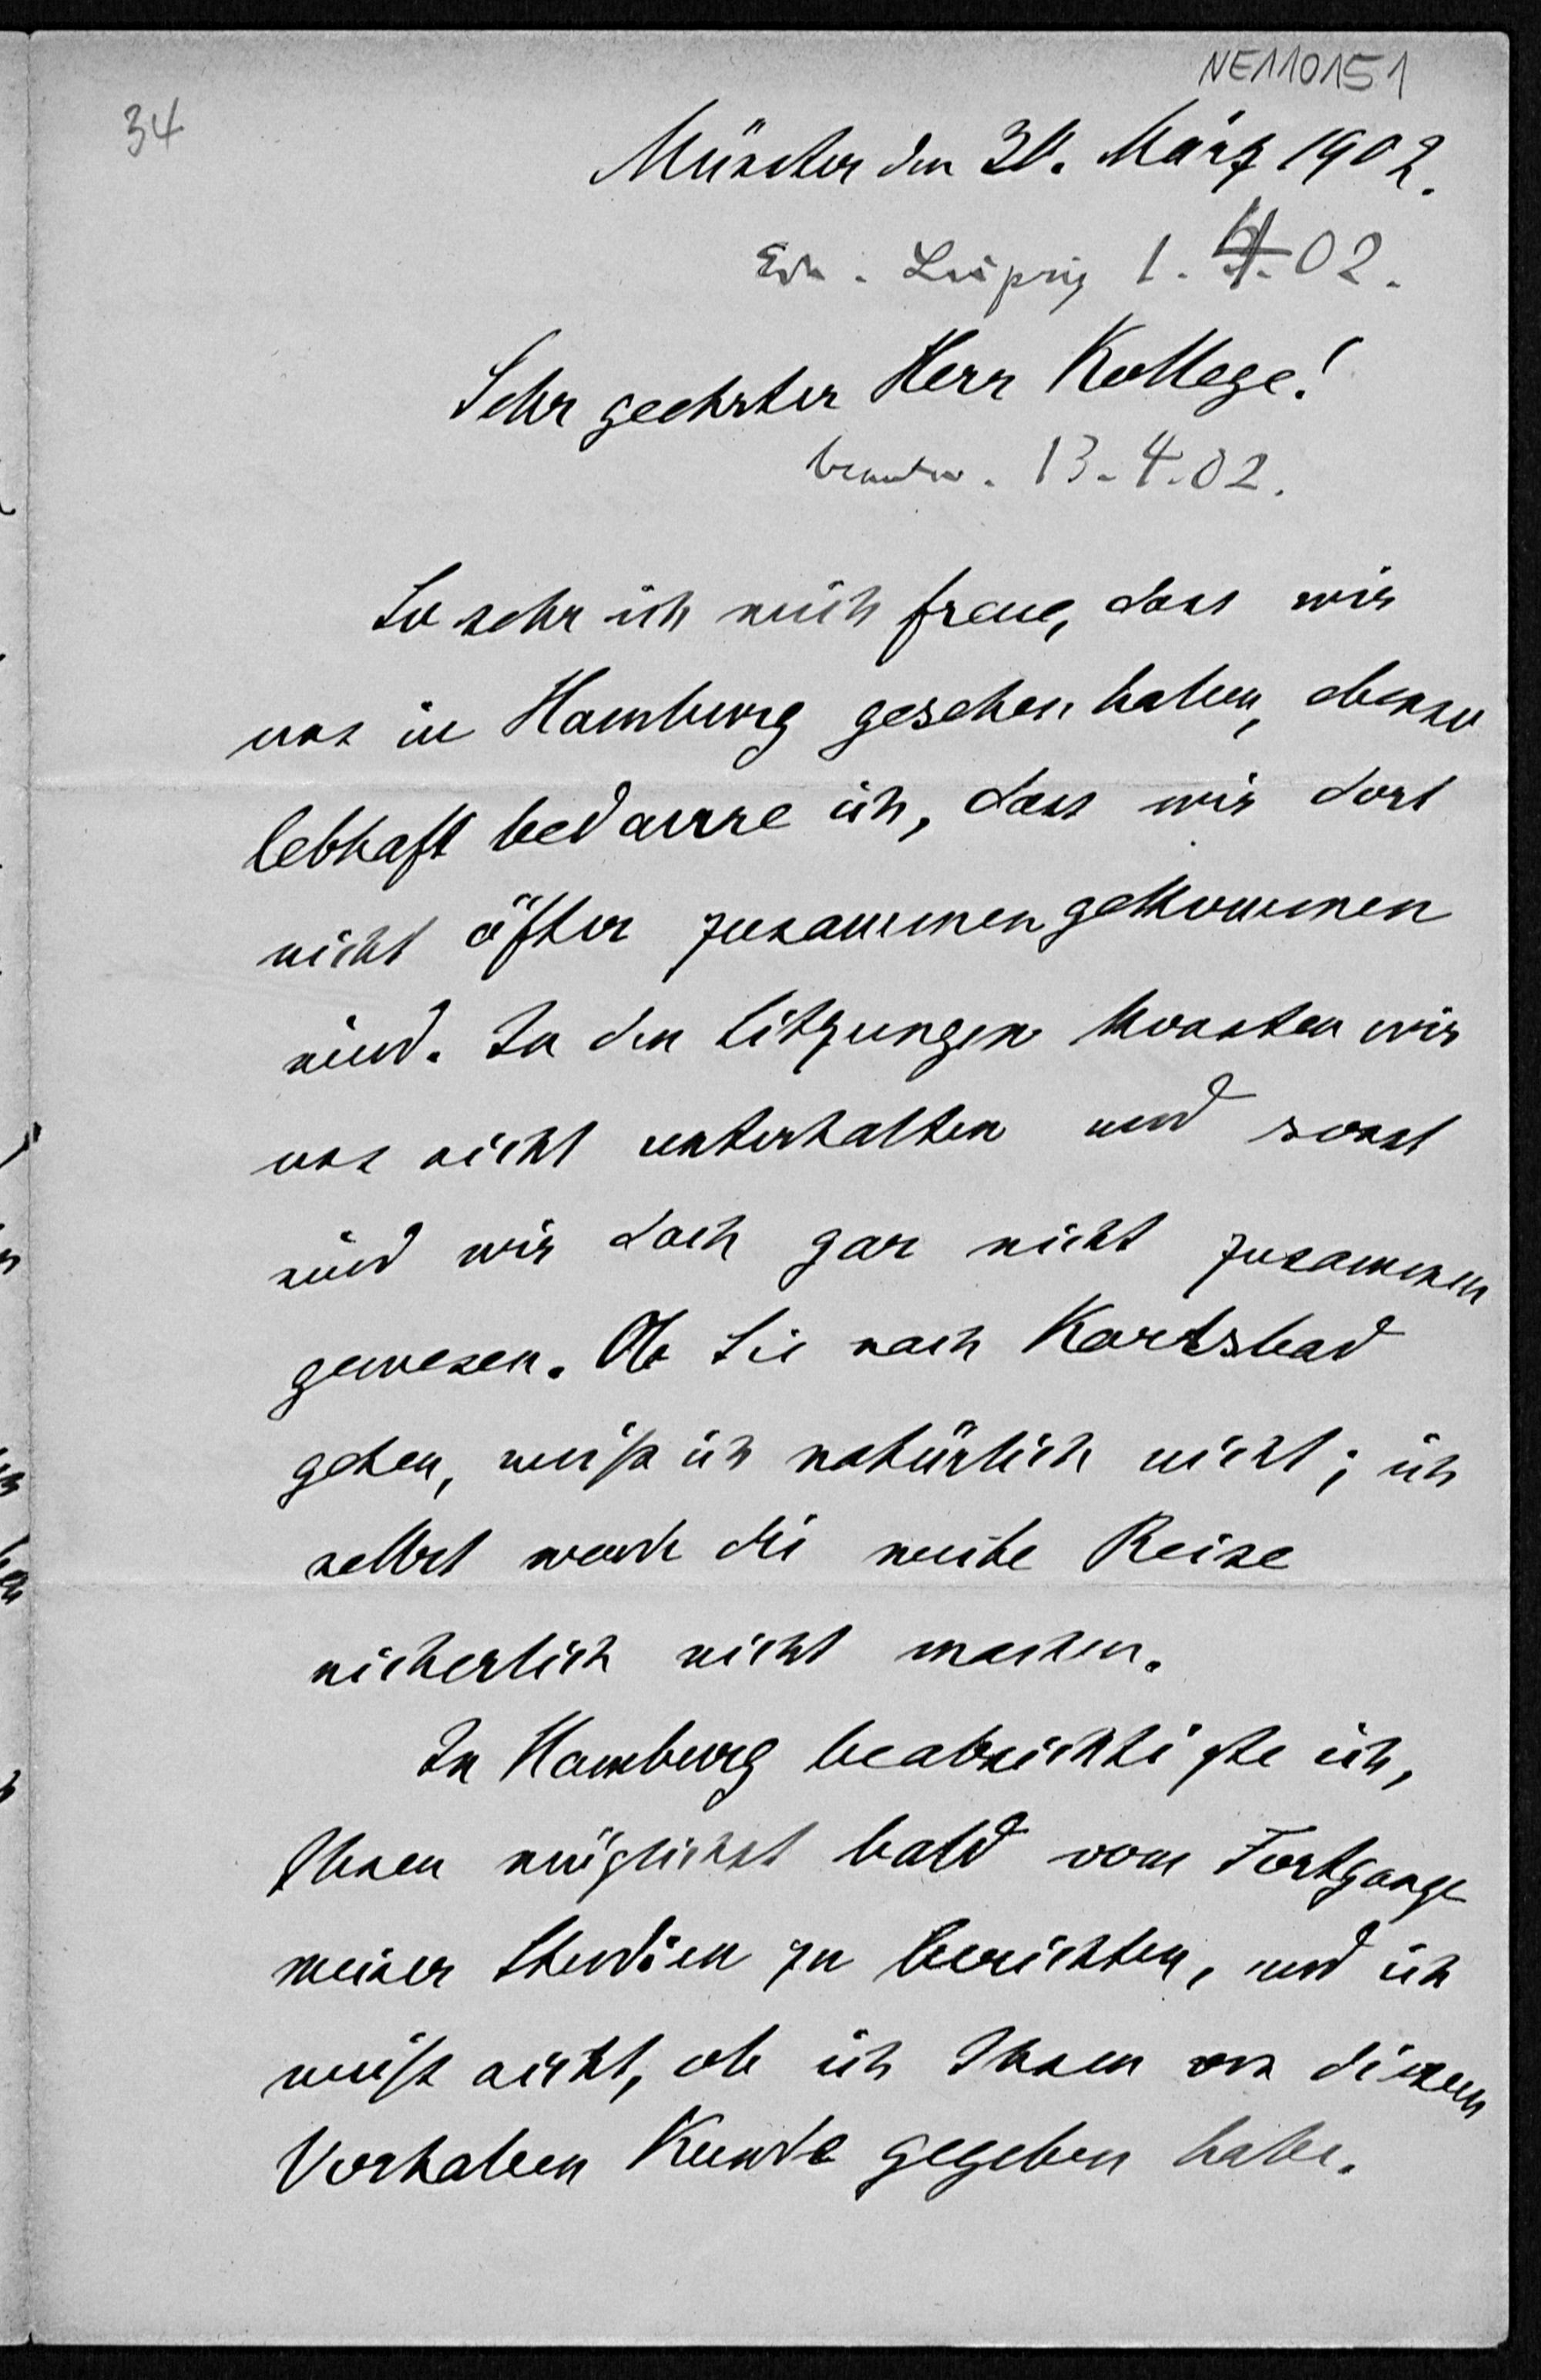 NE110151
34
Münster den 30. März 1902.
Erh. Leipzig 1. 4. 02.
Sehr geehrter Herr Kollege!
beantw. 13.4.02.
So sehr ich mich freue, dass wir
uns in Hamburg gesehen haben, ebenso
lebhaft bedaure ich, dass wir dort
nicht öfter zusammengekommen
sind. In den Sitzungen konnten wir
uns nicht unterhalten und sonst
sind wir doch gar nicht zusammen
gewesen. Ob Sie nach Karlsbad
gehen, weiß ich natürlich nicht; ich
selbst werde die weite Reise
sicherlich nicht machen.
In Hamburg beabsichtigte ich,
Ihnen möglichst bald vom Fortgange
meiner Studien zu berichten, und ich
weiß nicht, ob ich Ihnen von diesem
Vorhaben Kunde gegeben habe.